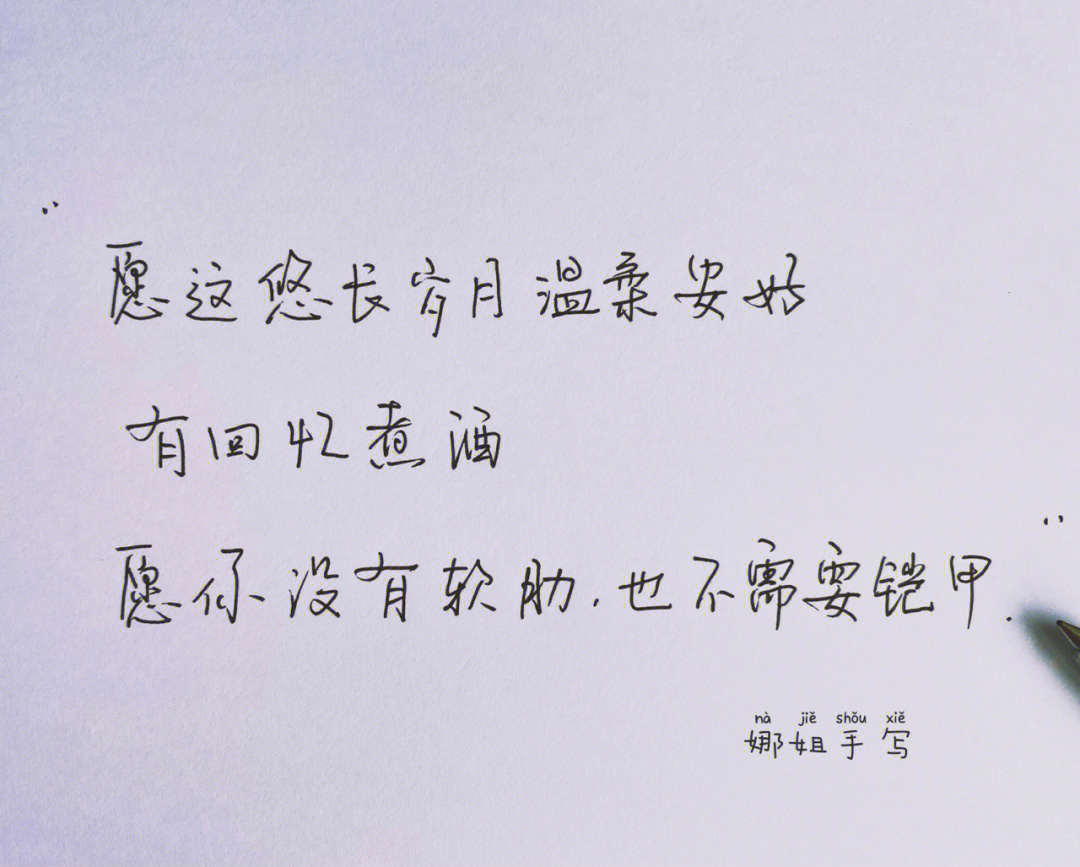 “
愿这悠长岁月温柔安好
有回忆煮酒
愿你没有软肋，也不需要铠甲.
”
nà jiě shǒu xiě
娜姐手写